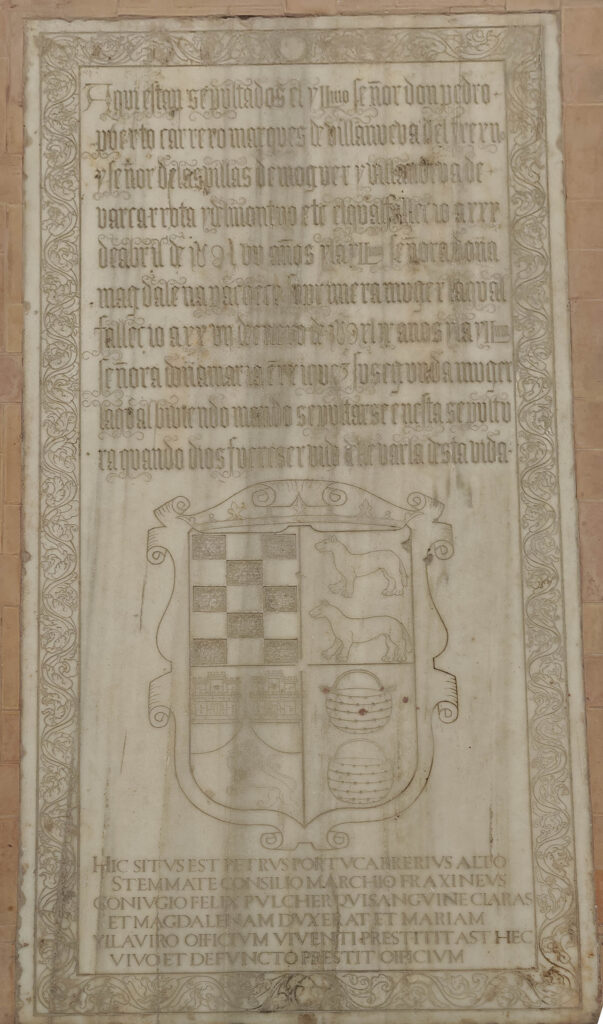 Aqui estan sepultados el yllmo señor don pedro
puerto carrero marques de villanueva del frexn
y señor de las villas de moguer y villanueva de
varcarrota y dlmontuo etc el qual fallecio a xxx
de abril de años y la yll señora doña
magdalena pacheco su primera muger la qual
fallecio a xx de de años y la yll
señora doña maria ērriquez su segunda muger
la qual biviendo mando sepultarse en esta sepultu
ra quando dios fuere servido de llevarla desta vida
HIC SITVS EST PETRVS PORTVCARRERIVS ALTO
STEMMATE CONSILIO MARCHIO FRAXINEVS
CONIVGIO FELIX PVLCHER QVI SANGVINE CLARAS
ET MAGDALENAM DVXERAT ET MARIAM
YILA VIRO OIFICIVM VIVENTI PRESTITIT AST HEC
VIVO ET DEFVNCTO PRESTIT OIFICIVM